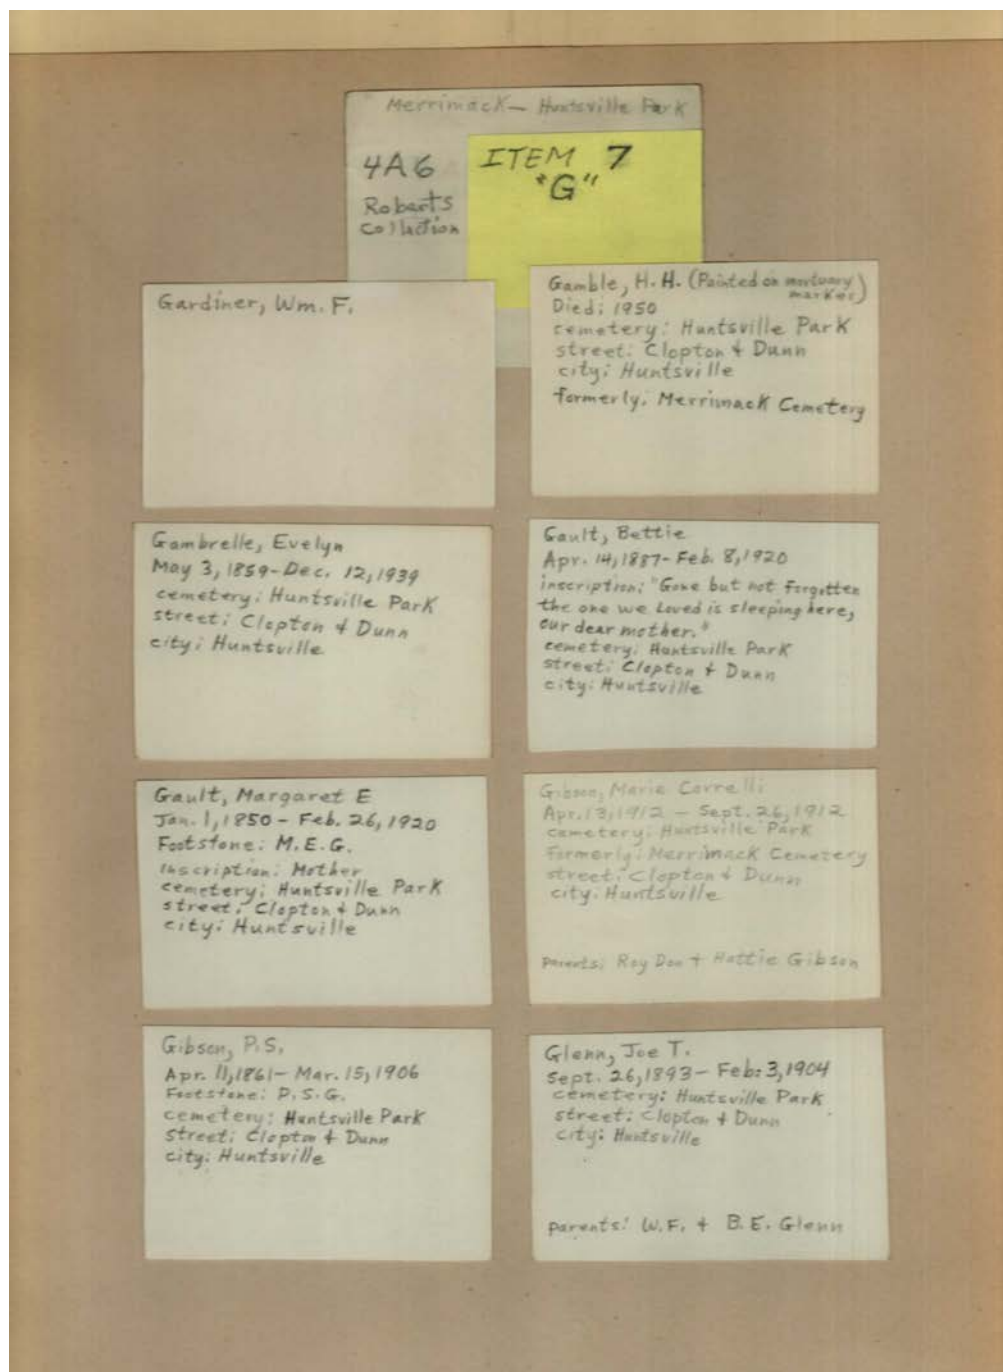 Merrimack— Huntsville Park
4A6
Roberts
Collection
ITEM 7
"G"
Gardiner, Wm. F.
Gamble, H.H. (Painted on mortuary
marker)
Died: 1950
cemetery: Huntsville Park
street: Clopton + Dunn
city: Huntsville
formerly: Merrimack Cemetery
Gambrelle, Evelyn
May 3, 1859-Dec. 12, 1939
cemetery: Huntsville Park
street: Clopton + Dunn
city: Huntsville
Gault, Bettie
Apr. 14, 1887- Feb. 8, 1920
inscription: "Gone but not forgotten
the one we loved is sleeping here,
our dear mother."
cemetery: Huntsville Park
street: Clopton + Dunn
city: Huntsville
Gault, Margaret E
Jan. 1, 1850 - Feb. 26, 1920
Footstone: M.E.G.
inscription: Mother
cemetery: Huntsville Park
street: Clopton + Dunn
city: Huntsville
Gibson, Marie Correlli
Apr. 13, 1912 - Sept. 26, 1912
cemetery: Huntsville Park
formerly: Merrimack Cemetery
street: Clopton + Dunn
city: Huntsville
parents: Roy Don + Hattie Gibson
Gibson, P.S.
Apr. 11, 1861- Mar. 15, 1906
Footstone: P.S.G.
cemetery: Huntsville Park
street: Clopton + Dunn
city: Huntsville
Glenn, Joe T.
Sept. 26, 1893- Feb: 3, 1904
cemetery: Huntsville Park
street: Clopton + Dunn
city: Huntsville
parents: W.F. + B.E. Glenn